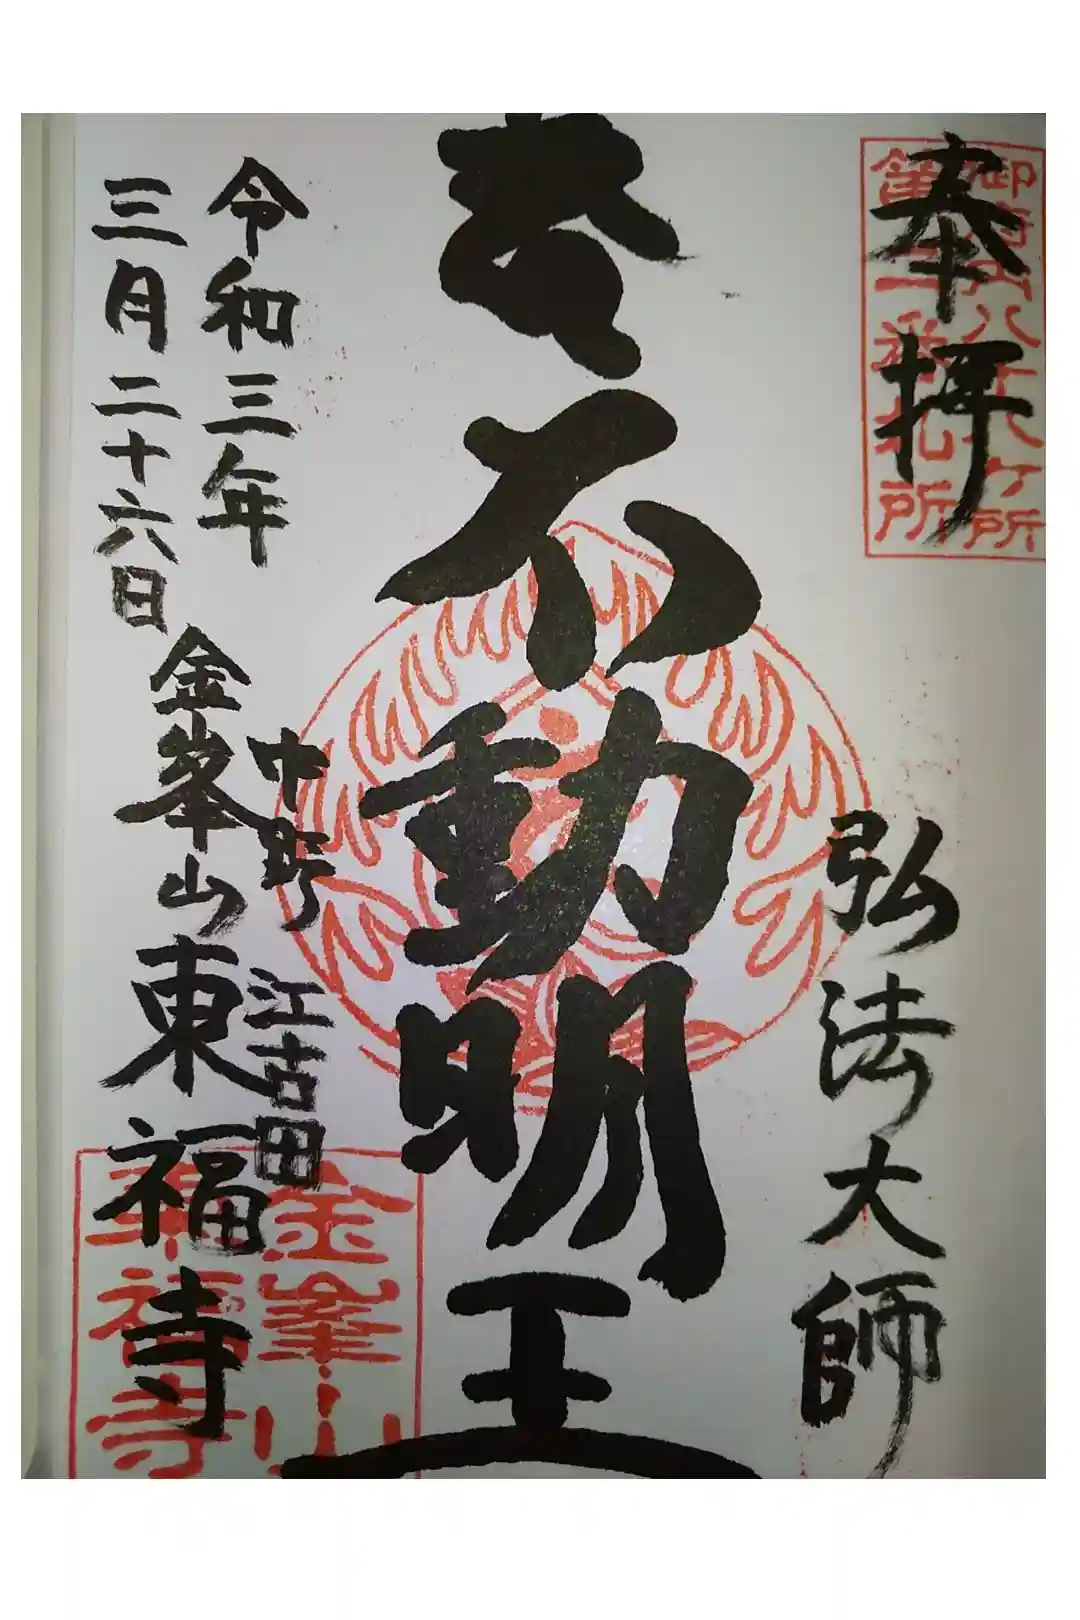 奉拝
御府内八十八ヶ所
第二番札所
弘法大師
不動明王
令和三年
三月二十六日
中野 江古田
金峯山 東福寺
金峯山
東福寺